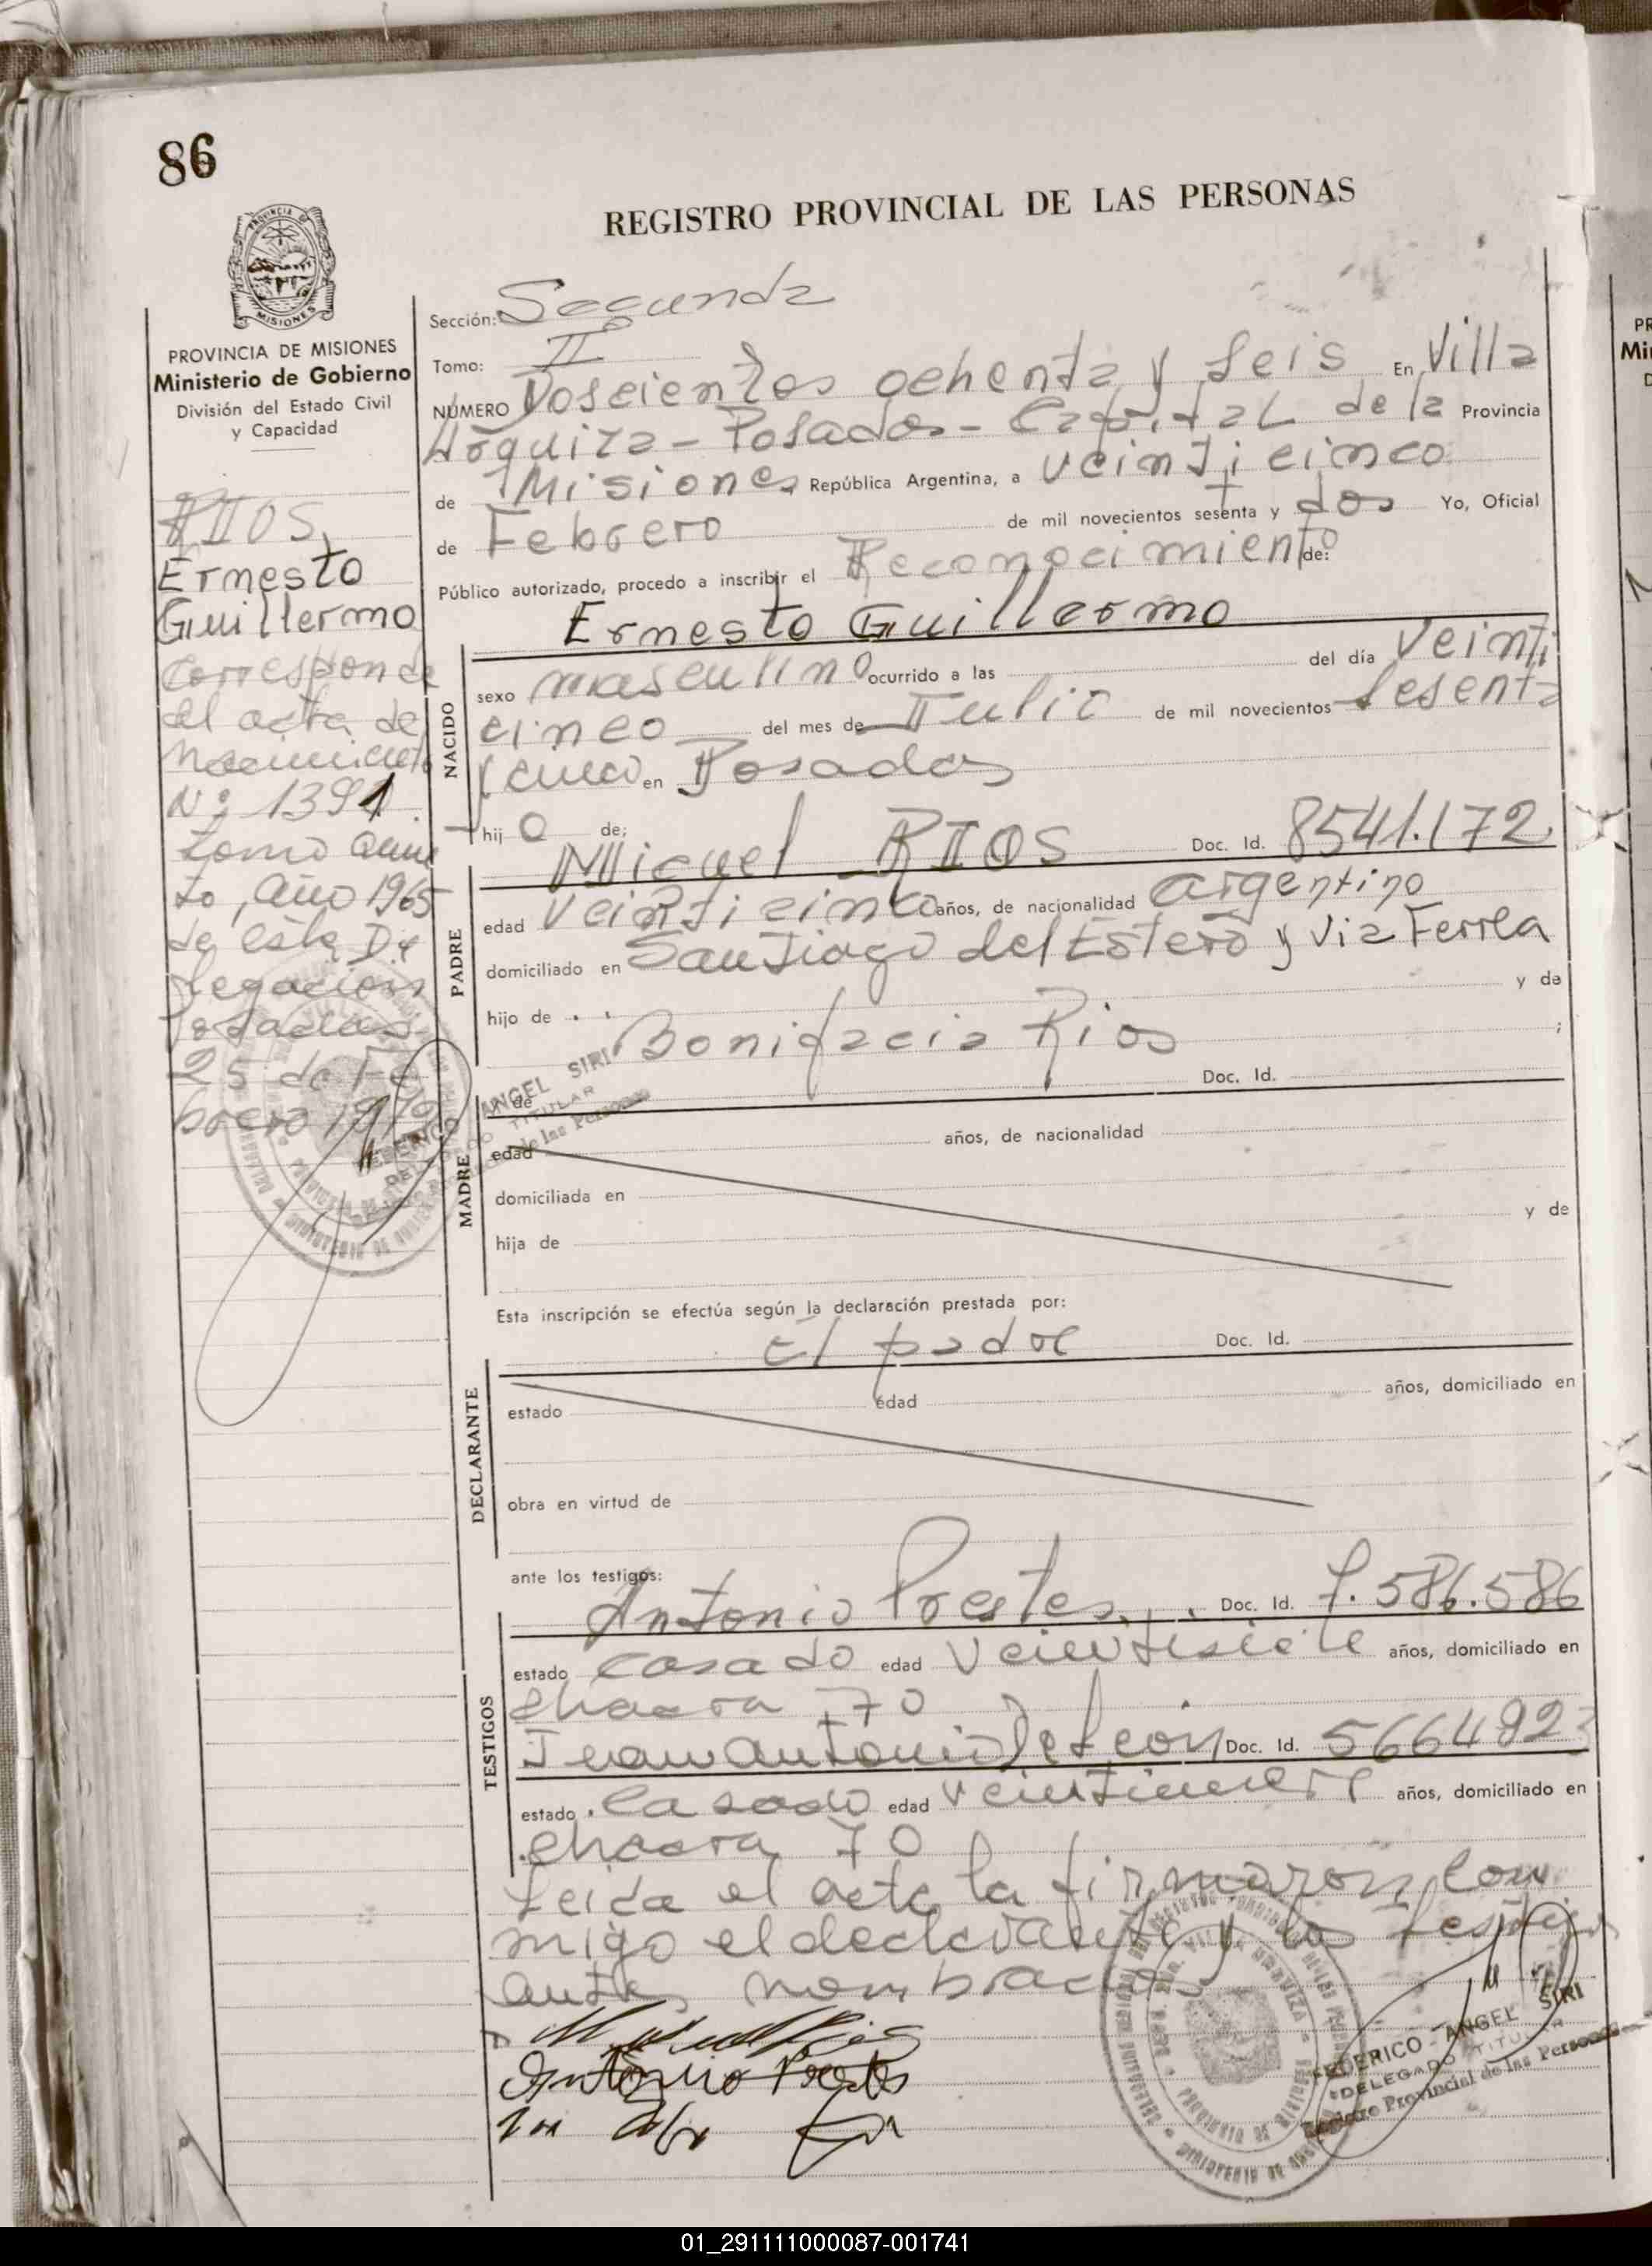 86
REGISTRO PROVINCIAL DE LAS PERSONAS
PROVINCIA DE MISIONES
Ministerio de Gobierno
División del Estado Civil
y Capacidad
RIOS,
Ernesto
Guillermo
Corresponde
al acta de
Nacimiento
Nº 1391
tomo quin
to, año 1965
de esta De
legacion
Posadas
25 de Fe
brero
Sección: Segunda
Tomo: IIº
NÚMERO Doscientos ochenta y seis En Villa
Urquiza - Posadas - Capital de la Provincia
de Misiones República Argentina, a veinticinco
de Febrero de mil novecientos sesenta y dos Yo, Oficial
Público autorizado, procedo a inscribir el Reconocimiento de:
Ernesto Guillermo
NACIDO
sexo masculino ocurrido a las del día Veinti
cinco del mes de Julio de mil novecientos sesenta
y cinco en Posadas
hij o de;
Miguel RIOS Doc. Id. 8541.172.
PADRE
edad Veinticinco años, de nacionalidad argentino
domiciliado en Santiago del Estero y Via Ferrea
hijo de y de
Bonifacia Rios ;
Doc. Id.
MADRE
y de
edad años, de nacionalidad
domiciliada en
hija de y de
Esta inscripción se efectúa según la declaración prestada por:
El padre Doc. Id.
DECLARANTE
estado edad años, domiciliado en
obra en virtud de
ante los testigos:
Antonio Prestes Doc. Id. 7.586.586
TESTIGOS
estado casado edad Veintisiete años, domiciliado en
chacra 70
Juan Antonio De Leon Doc. Id. 5664923
estado casado edad veintinueve años, domiciliado en
chacra 70
Leida el acta la firmaron con
migo el declarante y los testigos
antes nombrados
Antonio Prestes
FEDERICO ANGEL SIRI
DELEGADO TITULAR
Registro Provincial de las Personas
01_291111000087-001741